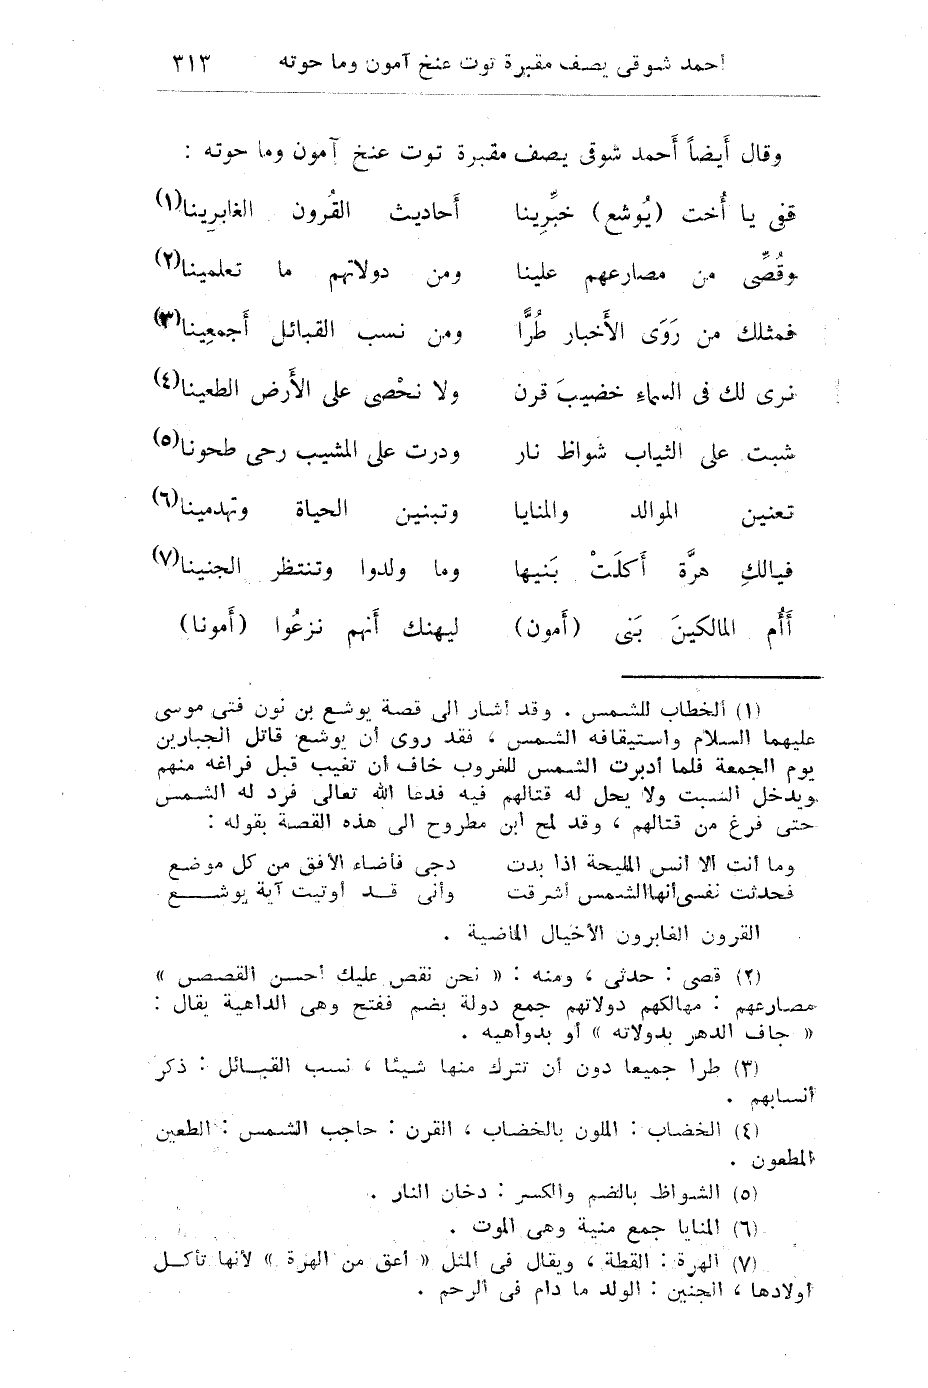 أحمد شوقى يصف مقبرة توت عنخ آمون وما حوته ٣١٣
وقال أَيضاً أَحمد شوقى يصف مقبرة توت عنخ آمون وما حوته :
قفى يا أُخت (يُوشع) خبِّرينا أَحاديث القُرون الغابرِينا(١)
وقُصِّى من مصارعهم علينا ومن دولاتهم ما تعلمينا(٢)
فمثلك من رَوَى الأَخبار طُرًّا ومن نسب القبائل أَجمعِينا(٣)
نرى لك فى السماء خضيبَ قرن ولا نحْصى على الأَرض الطعينا(٤)
شبت على الثياب شواظ نار ودرت على المشيب رحى طحونا(٥)
تعنين الموالد والمنايا وتبنين الحياة وتهدمينا(٦)
فيالكِ هرَّة أَكلَتْ بَنيها وما ولدوا وتنتظر الجنينا(٧)
أَأُم المالكينَ بَنى (أَمون) ليهنك أَنهم نزعُوا (أَمونا)
(١) الخطاب للشمس . وقد أشار الى قصة يوشع بن نون فتى موسى
عليهما السلام واستيقافه الشمس ، فقد روى أن يوشع قاتل الجبارين
يوم الجمعة فلما أدبرت الشمس للغروب خاف أن تغيب قبل فراغه منهم
ويدخل السبت ولا يحل له قتالهم فيه فدعا الله تعالى فرد له الشمس
حتى فرغ من قتالهم ، وقد لمح ابن مطروح الى هذه القصة بقوله :
وما أنت الا أنس المليحة اذا بدت دجى فأضاء الأفق من كل موضع
فحدثت نفسى أنها الشمس أشرقت وأنى قد أوتيت آية يوشــــع
القرون الغابرون الأخيال الماضية .
(٢) قصى : حدثى ، ومنه : « نحن نقص عليك أحسن القصص »
مصارعهم : مهالكهم دولاتهم جمع دولة بضم ففتح وهى الداهية يقال :
« جاف الدهر بدولاته » أو بدواهيه .
(٣) طرا جميعا دون أن تترك منها شيئا ، نسب القبائل : ذكر
أنسابهم .
(٤) الخضاب : الملون بالخضاب ، القرن : حاجب الشمس : الطعين
المطعون .
(٥) الشواظ بالضم والكسر : دخان النار .
(٦) المنايا جمع منية وهى الموت .
(٧) الهرة : القطة ، ويقال فى المثل « أعق من الهرة » لأنها تأكــل
أولادها ، الجنين : الولد ما دام فى الرحم .